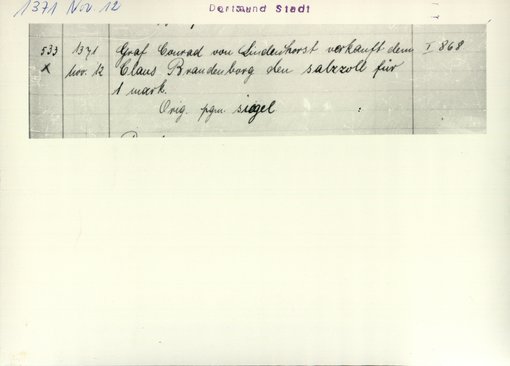 1371 Nov. 12
Dortmund Stadt
533 1371 Graf Conrad von Lindenhorst verkauft dem I 868
X nov. 12 Claus Brandenborg den salzzoll für
1 mark.
Orig. pgm siegel